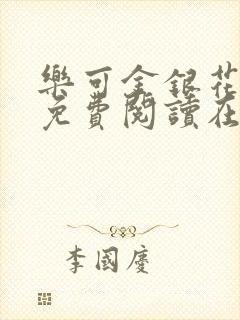 樂可金銀花
免費閱讀在
李國慶